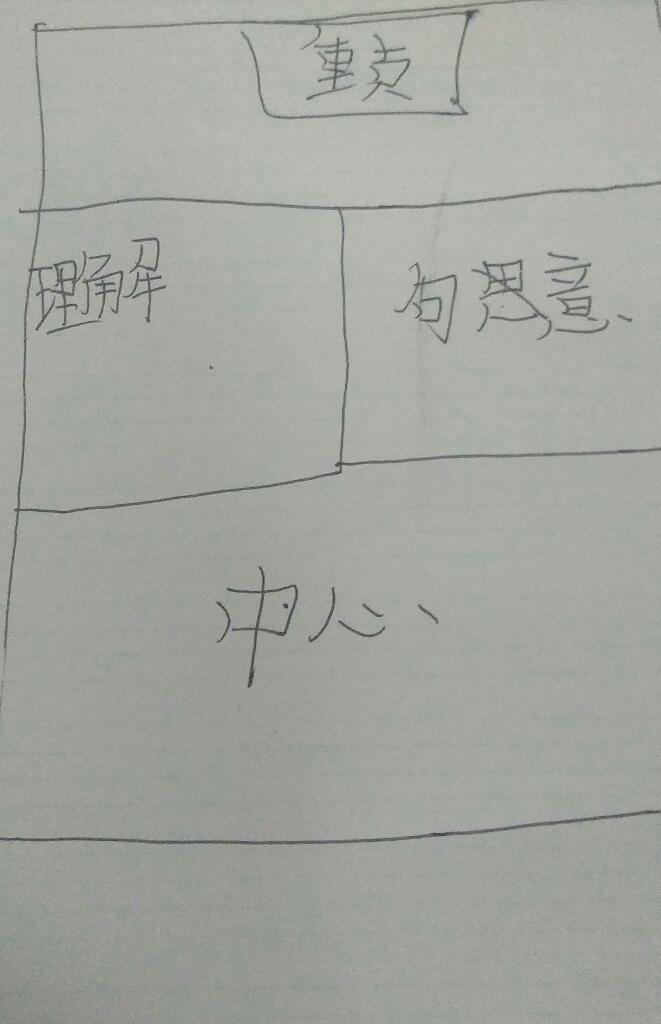 重点
理解
句思意、
中心、